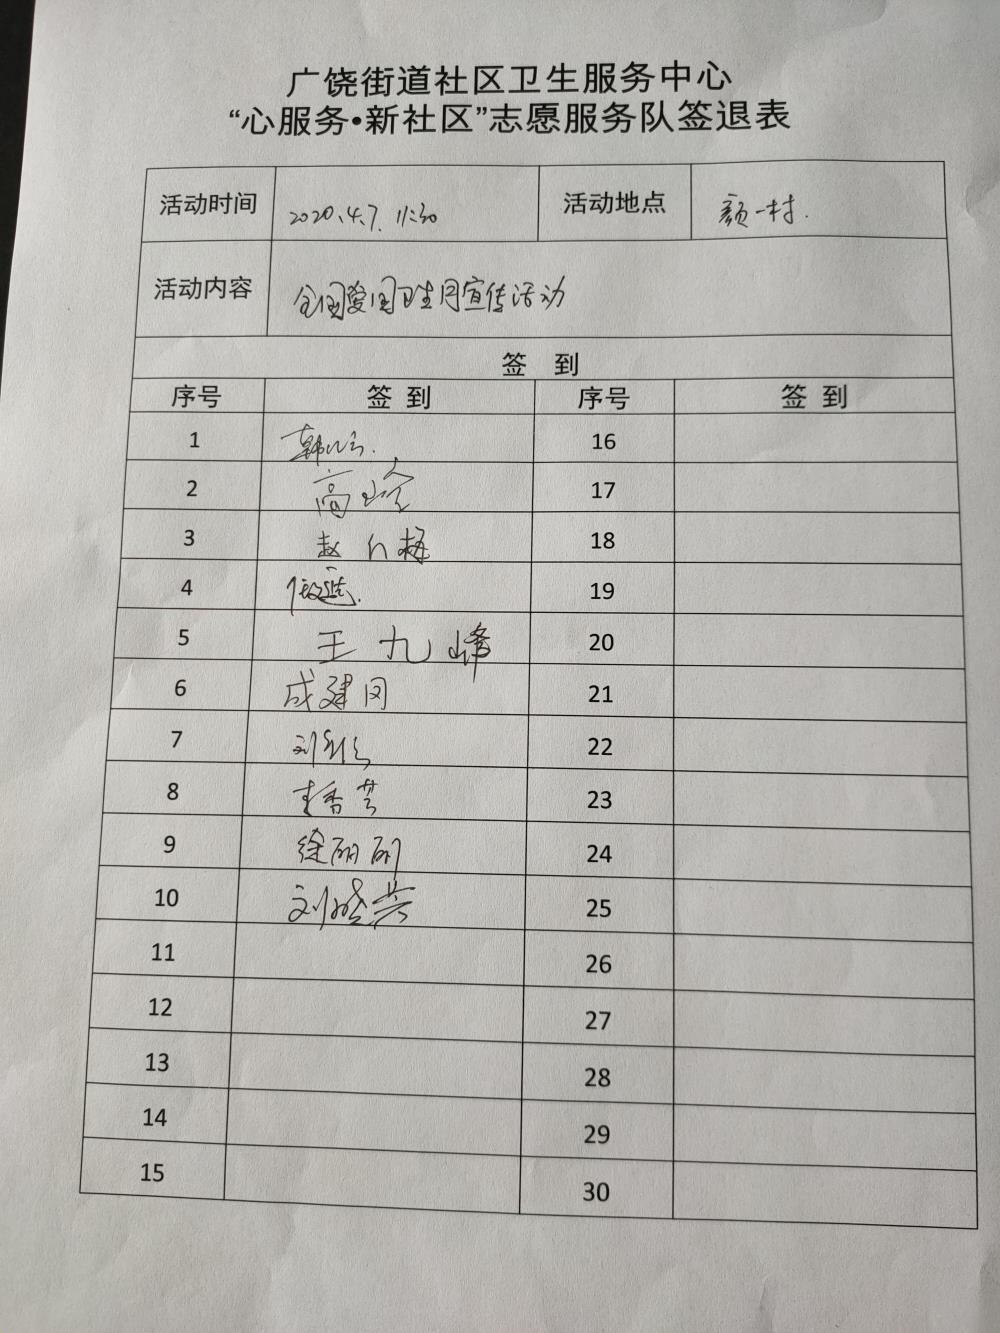 广饶街道社区卫生服务中心
“心服务•新社区”志愿服务队签退表
活动时间 2020.4.7. 11:30 活动地点 颜一村.
活动内容 全国爱国卫生月宣传活动
签 到
序号 签到 序号 签到
1 16
2 高 17
3 赵 梅 18
4 19
5 王九峰 20
6 成建国 21
7 刘 22
8 李香芸 23
9 徐丽丽 24
10 刘晓芸 25
11 26
12 27
13 28
14 29
15 30